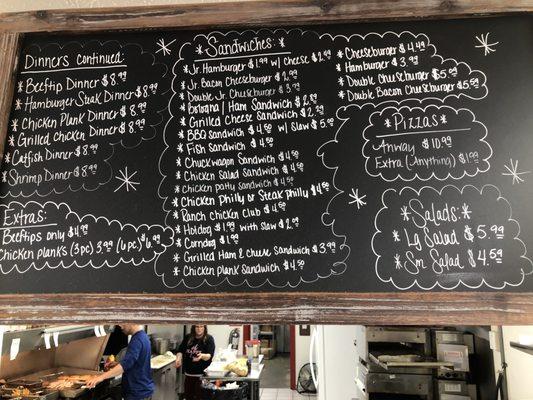 Dinners continued:
* Beeftip Dinner $8.99
* Hamburger Steak Dinner $8.99
* Chicken Plank Dinner $8.99
* Grilled Chicken Dinner $8.99
* Catfish Dinner $8.99
* Shrimp Dinner $8.99
Extras:
Beeftips only $4.99
Chicken planks (3pc) 3.99 (6pc) $6.99
* Sandwiches: *
* Jr. Hamburger $1.99 w/ cheese $2.99
* Jr. Bacon Cheeseburger $2.99
* Double Jr. Cheeseburger $3.79
* Bologna / Ham Sandwich $2.89
* Grilled Cheese Sandwich $2.99
* BBQ Sandwich $4.50 w/ Slaw $5.00
* Fish Sandwich $4.50
* Chuckwagon Sandwich $4.50
* Chicken Salad Sandwich $4.50
* Chicken patty Sandwich $4.50
* Chicken Philly or Steak Philly $4.50
* Ranch chicken club $4.50
* Hotdog $1.99 with slaw $2.99
* Corndog $1.99
* Grilled Ham & Cheese Sandwich $3.99
* Chicken Plank Sandwich $4.50
* Cheeseburger $4.49
* Hamburger $3.99
* Double Cheeseburger $5.50
* Double Bacon Cheeseburger $5.99
* Pizzas *
Anyway $10.99
Extra (Anything) $1.99
* Salads: *
* Lg Salad $5.99
* Sm Salad $4.59